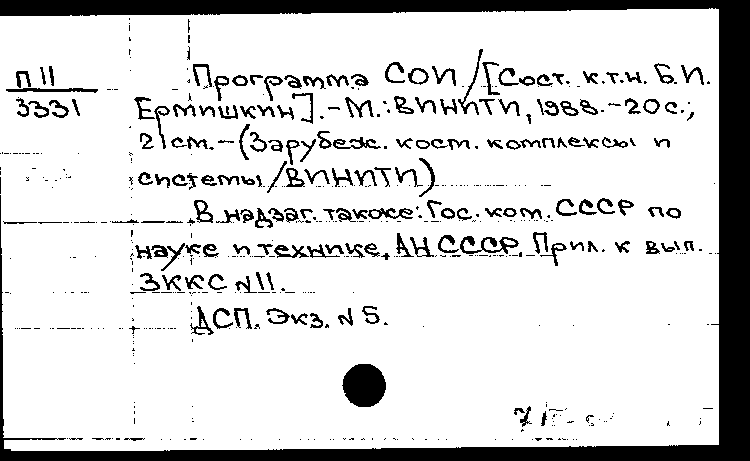 П 11
3331
Программа СОИ / [Сост. к.т.н. Б.И.
Ермишкин]. - М.: ВИНИТИ, 1988. - 20 с.;
21 см. - (Зарубеж. косм. комплексы и
системы / ВИНИТИ)
В надзаг. также: Гос. ком. СССР по
науке и технике, АН СССР. Прил. к вып.
ЗККС N 11.
ДСП. Экз. N 5.